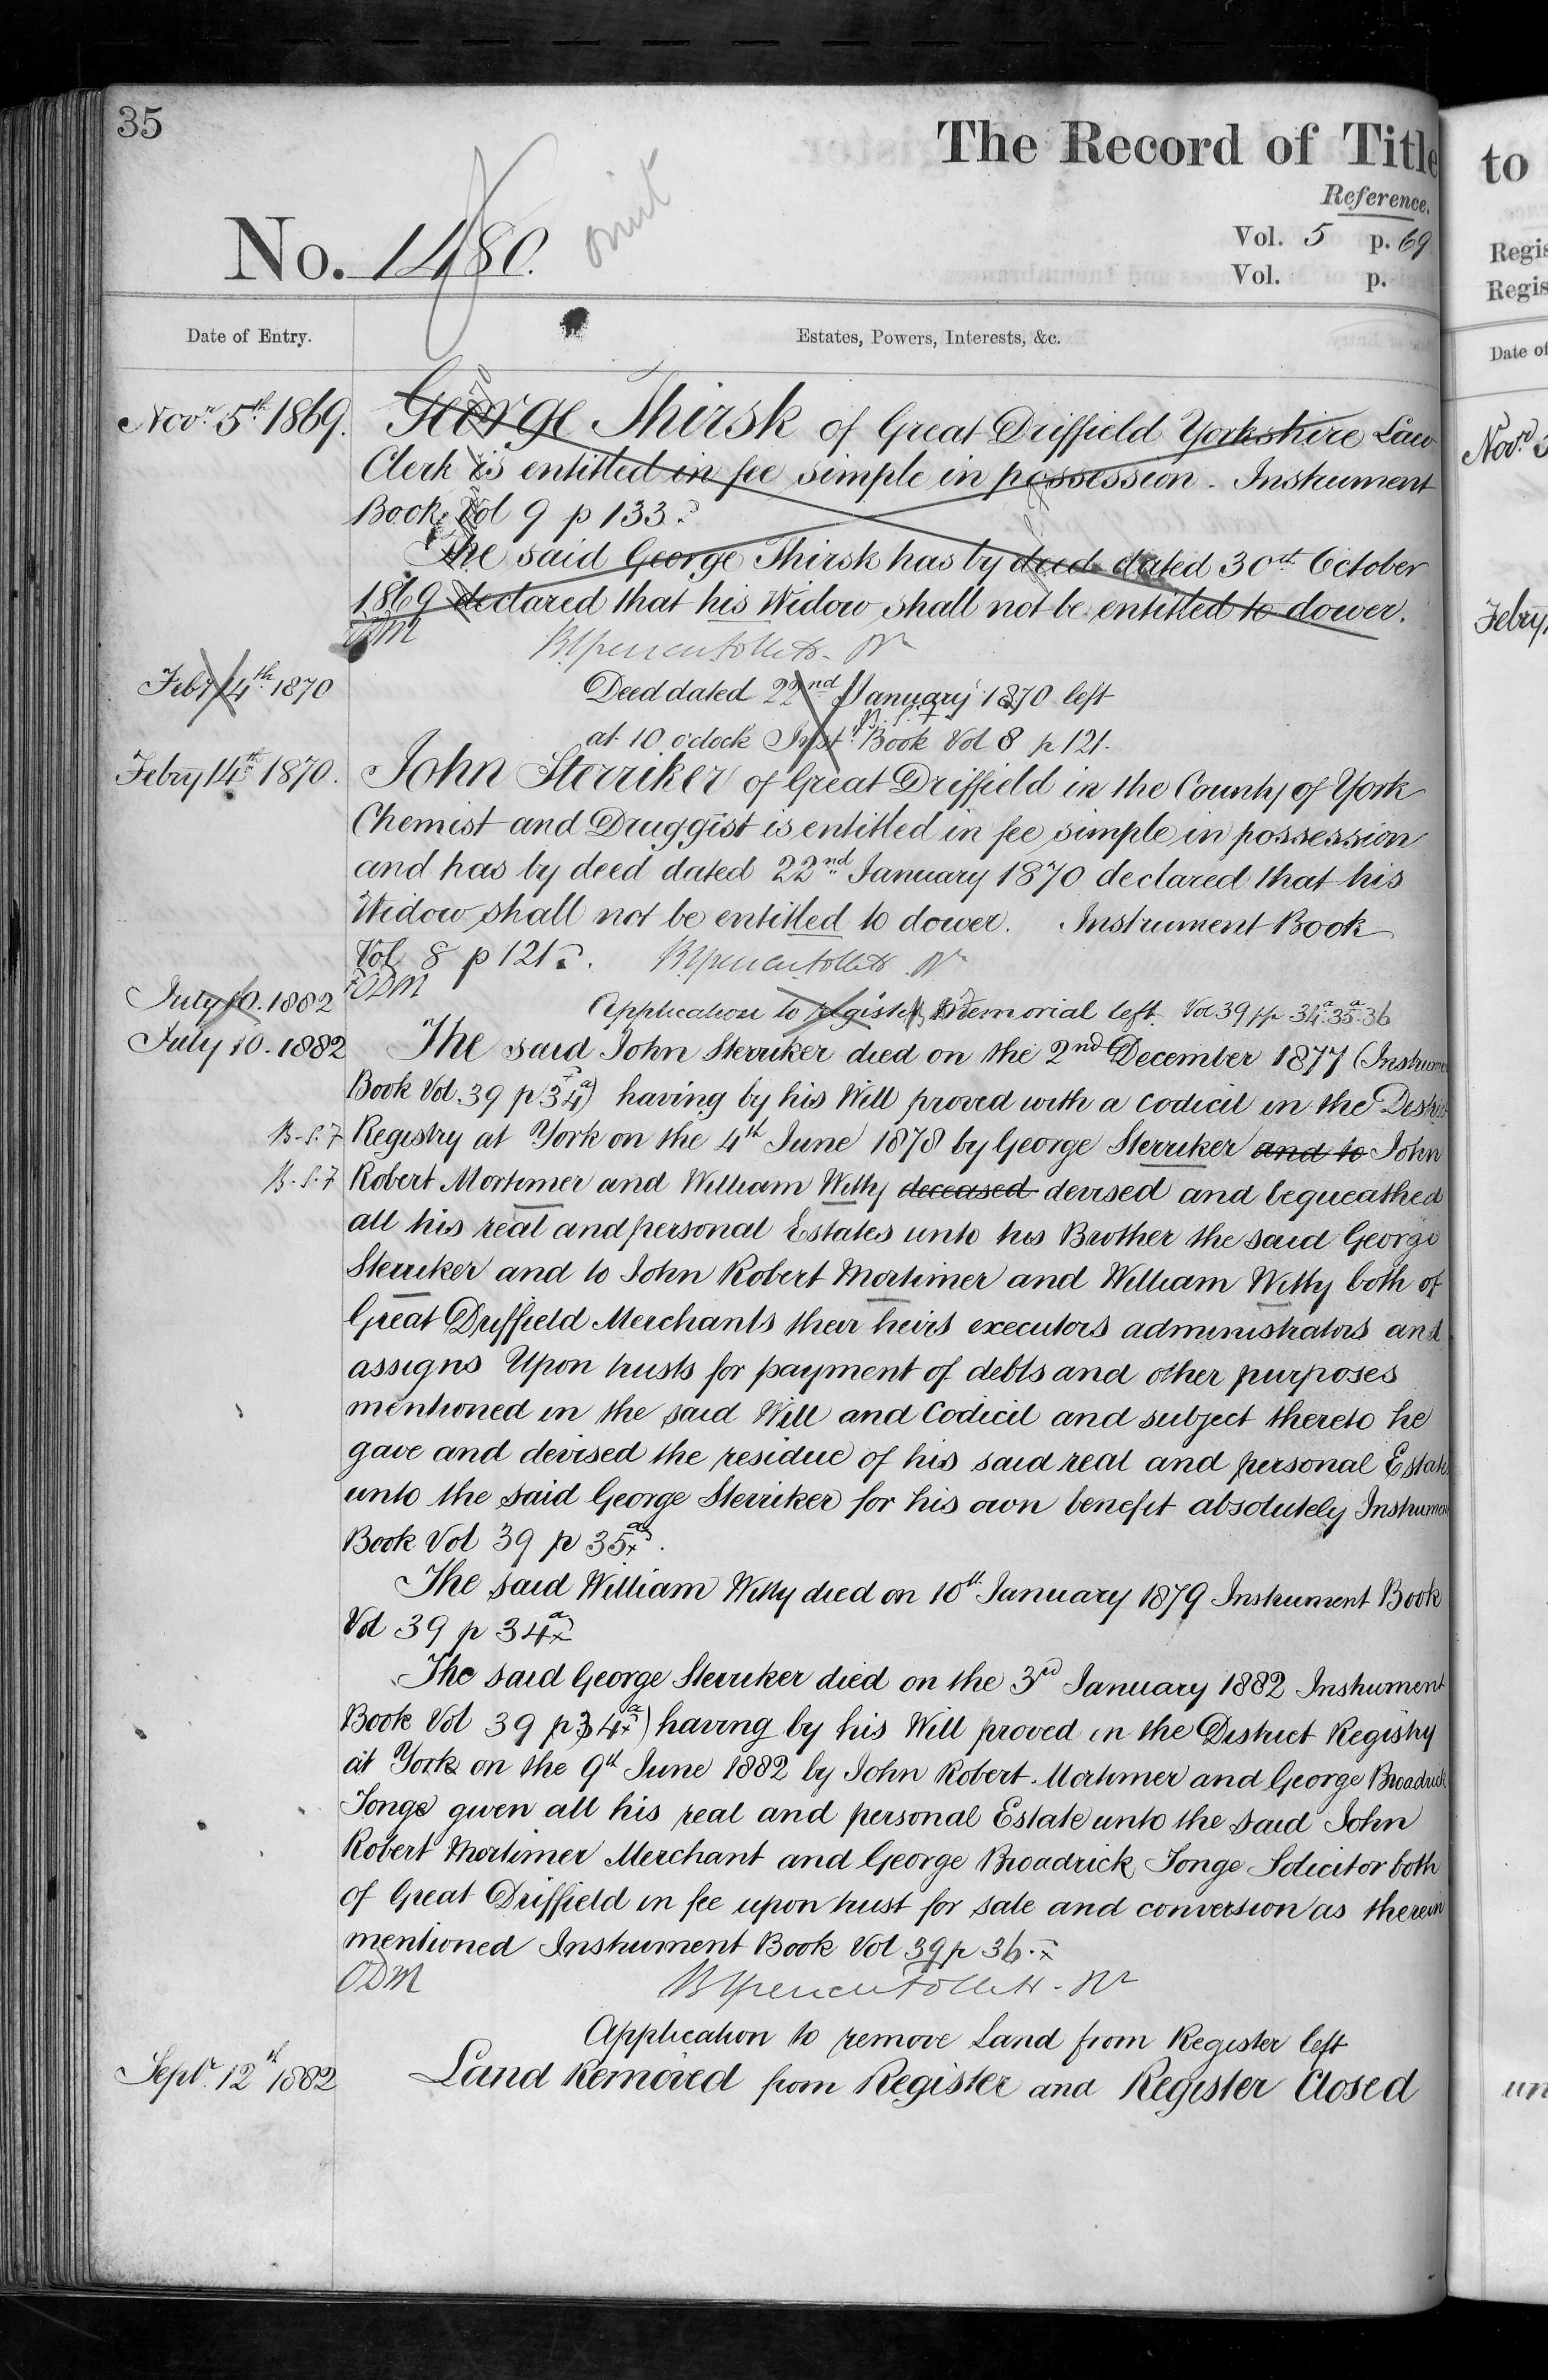 35
The Record of Title
Reference.
No. 1480.
omit
Vol. 5 p. 69
Vol. p.
Date of Entry.
Estates, Powers, Interests, &c.
Novr. 5th. 1869.
George Thirsk of Great Driffield Yorkshire Law
Clerk is entitled in fee simple in possession. Instrument
Book Vol 9 p 133
The said George Thirsk has by deed dated 30th October
1869 declared that his Widow shall not be entitled to dower.
ODM
Feby 14th. 1870
Deed dated 22nd January 1870 left
at 10 o'clock Inst. Book Vol 8 p 121.
Febry 14th 1870.
John Sterriker of Great Driffield in the County of York
Chemist and Druggist is entitled in fee simple in possession
and has by deed dated 22nd January 1870 declared that his
Widow shall not be entitled to dower. Instrument Book
Vol 8 p 121.
ODM
July 10. 1882
Application to register Memorial left. Vol 39 pp 34a 35a 36
July 10. 1882
The said John Sterriker died on the 2nd December 1877 (Instrume
Book Vol. 39 p 34a) having by his Will proved with a codicil in the District
B.S.F
Registry at York on the 4th June 1878 by George Sterriker and to John
B.S.F
Robert Mortimer and William Witty deceased devised and bequeathed
all his real and personal Estates unto his Brother the said George
Sterriker and to John Robert Mortimer and William Witty both of
Great Driffield Merchants their heirs executors administrators and
assigns Upon trusts for payment of debts and other purposes
mentioned in the said Will and Codicil and subject thereto he
gave and devised the residue of his said real and personal Estate
unto the said George Sterriker for his own benefit absolutely Instrumen
Book Vol 39 p 35a.
The said William Witty died on 10th January 1879 Instrument Book
Vol 39 p 34a
The said George Sterriker died on the 3rd January 1882 Instrument
Book Vol 39 p 34a) having by his Will proved in the District Registry
at York on the 9th June 1882 by John Robert Mortimer and George Broadrick
Tonge given all his real and personal Estate unto the said John
Robert Mortimer Merchant and George Broadrick Tonge Solicitor both
of Great Driffield in fee upon trust for sale and conversion as therein
mentioned Instrument Book Vol 39 p 36.
ODM
Application to remove Land from Register left
Septr. 12th 1882
Land Removed from Register and Register Closed
to
Regis
Regis
Date of
Novr 5
Febry
un